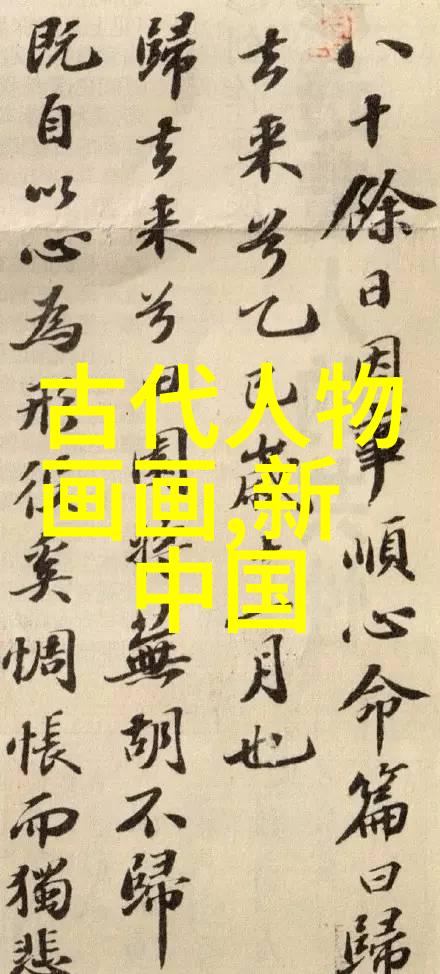 八十餘日因事順心命篇曰歸
去来兮乙巳歲月也
歸去来兮田園将蕪胡不歸
既自以心為形役奚惆悵而獨悲
古代人物
画画,新
中国